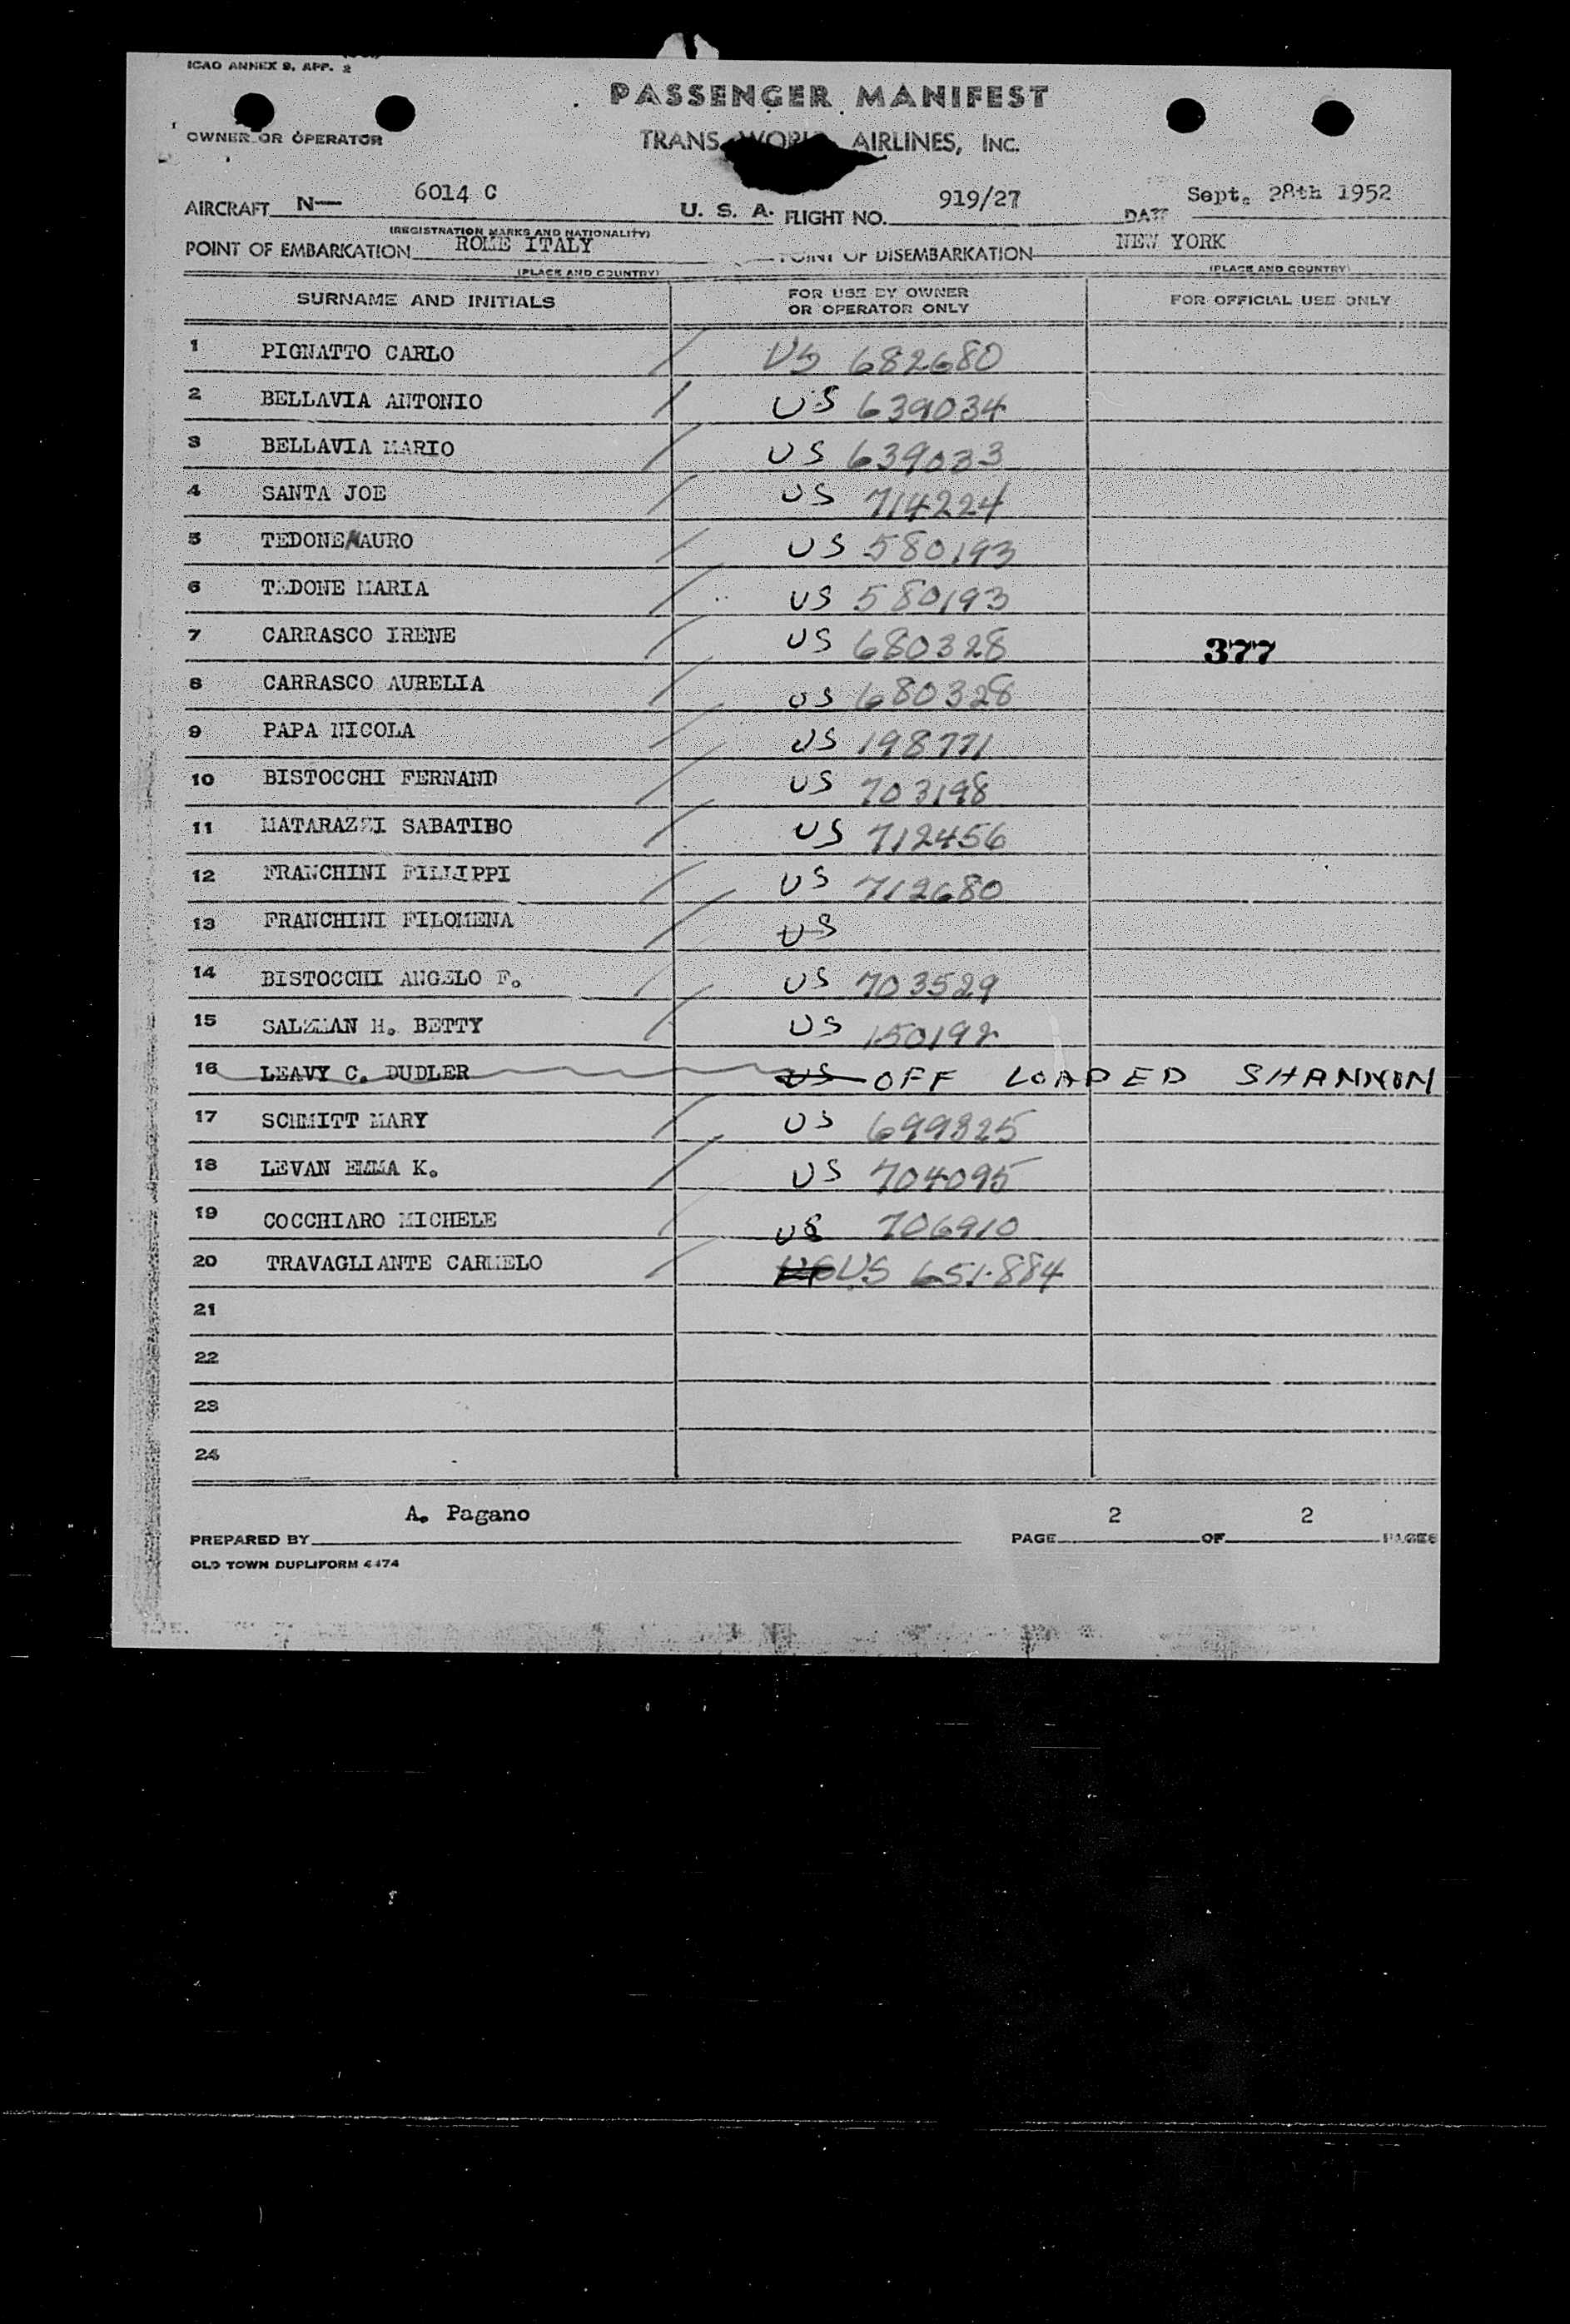 ICAO ANNEX 9, APP. 2
PASSENGER MANIFEST
OWNER OR OPERATOR TRANS WORLD AIRLINES, INC.
AIRCRAFT N— 6014 C U. S. A. FLIGHT NO. 919/27 DATE Sept. 28th 1952
(REGISTRATION MARKS AND NATIONALITY)
POINT OF EMBARKATION ROME ITALY POINT OF DISEMBARKATION NEW YORK
(PLACE AND COUNTRY) (PLACE AND COUNTRY)
SURNAME AND INITIALS FOR USE BY OWNER OR OPERATOR ONLY FOR OFFICIAL USE ONLY
1 PIGNATTO CARLO / US 682680
2 BELLAVIA ANTONIO / US 639034
3 BELLAVIA MARIO / US 639033
4 SANTA JOE / US 714224
5 TEDONE MAURO / US 580193
6 TEDONE MARIA / US 580193
7 CARRASCO IRENE / US 680328 377
8 CARRASCO AURELIA / US 680328
9 PAPA NICOLA / US 198771
10 BISTOCCHI FERNAND / US 703198
11 MATARAZZI SABATIBO / US 712456
12 FRANCHINI FILLIPPI / US 712680
13 FRANCHINI FILOMENA / US
14 BISTOCCHI ANGELO F. / US 703529
15 SALZMAN H. BETTY / US 150192
16 LEAVY C. DUDLER US OFF LOADED SHANNON
17 SCHMITT MARY / US 699825
18 LEVAN EMMA K. / US 704095
19 COCCHIARO MICHELE / US 706910
20 TRAVAGLIANTE CARMELO / US 651.884
21
22
23
24
PREPARED BY A. Pagano PAGE 2 OF 2 PAGES
OLD TOWN DUPLIFORM 4474